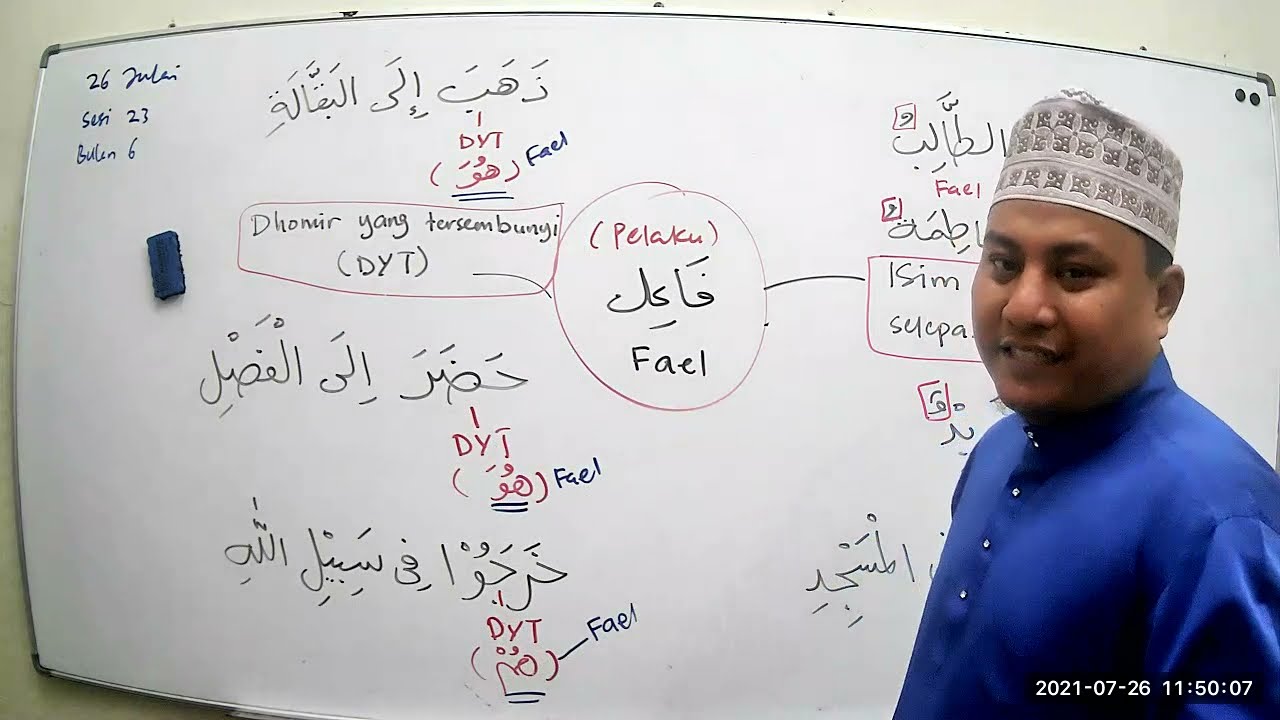 26 Julai
Sesi 23
Bulan 6
ذَهَبَ إِلَى البَقَّالَةِ
DYT
(هُوَ) Fael
Dhomir yang tersembunyi
(DYT)
حَضَرَ إِلَى الْفَصْلِ
DYT
(هُوَ) Fael
خَرَجُوْا فِي سَبِيْلِ اللّٰهِ
DYT
(هُمْ) Fael
(Pelaku)
فَاعِل
Fael
و
الطَّالِب
Fael
و
Isim
المَسْجِدِ
2021-07-26 11:50:07